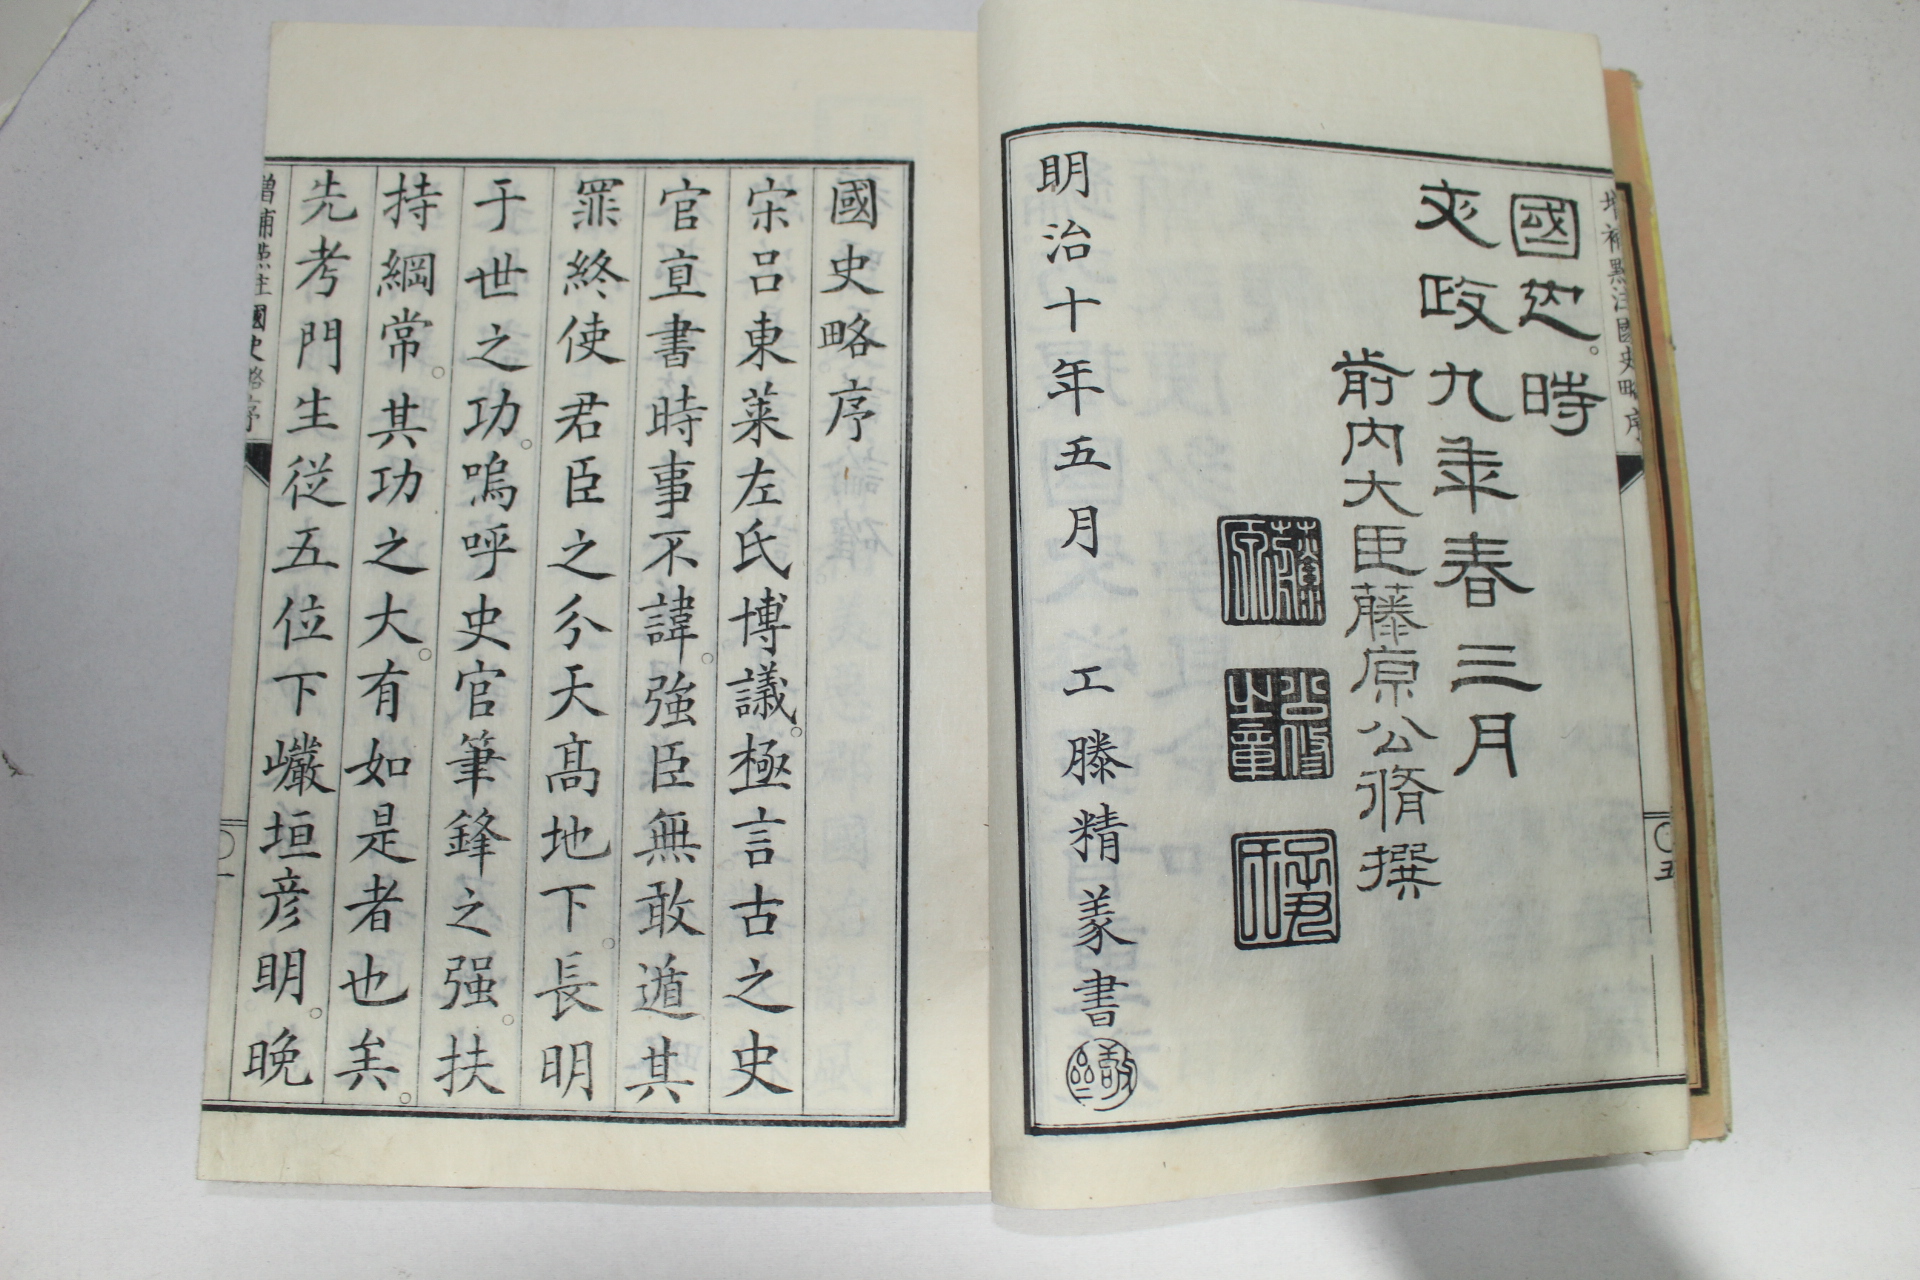 增補點注國史略序
五
國也。時
文政九年春三月
前内大臣藤原公脩撰
藤原
公脩之章
明治十年五月 工藤精義書
國史略序
宋呂東萊左氏博議。極言古之史
官直書時事不諱。強臣無敢遁其
罪終使君臣之分天高地下。長明
于世之功。嗚呼史官筆鋒之强。扶
持綱常。其功之大。有如是者也矣。
先考門生從五位下巗垣彦明。晩
增補點註國史略序
一